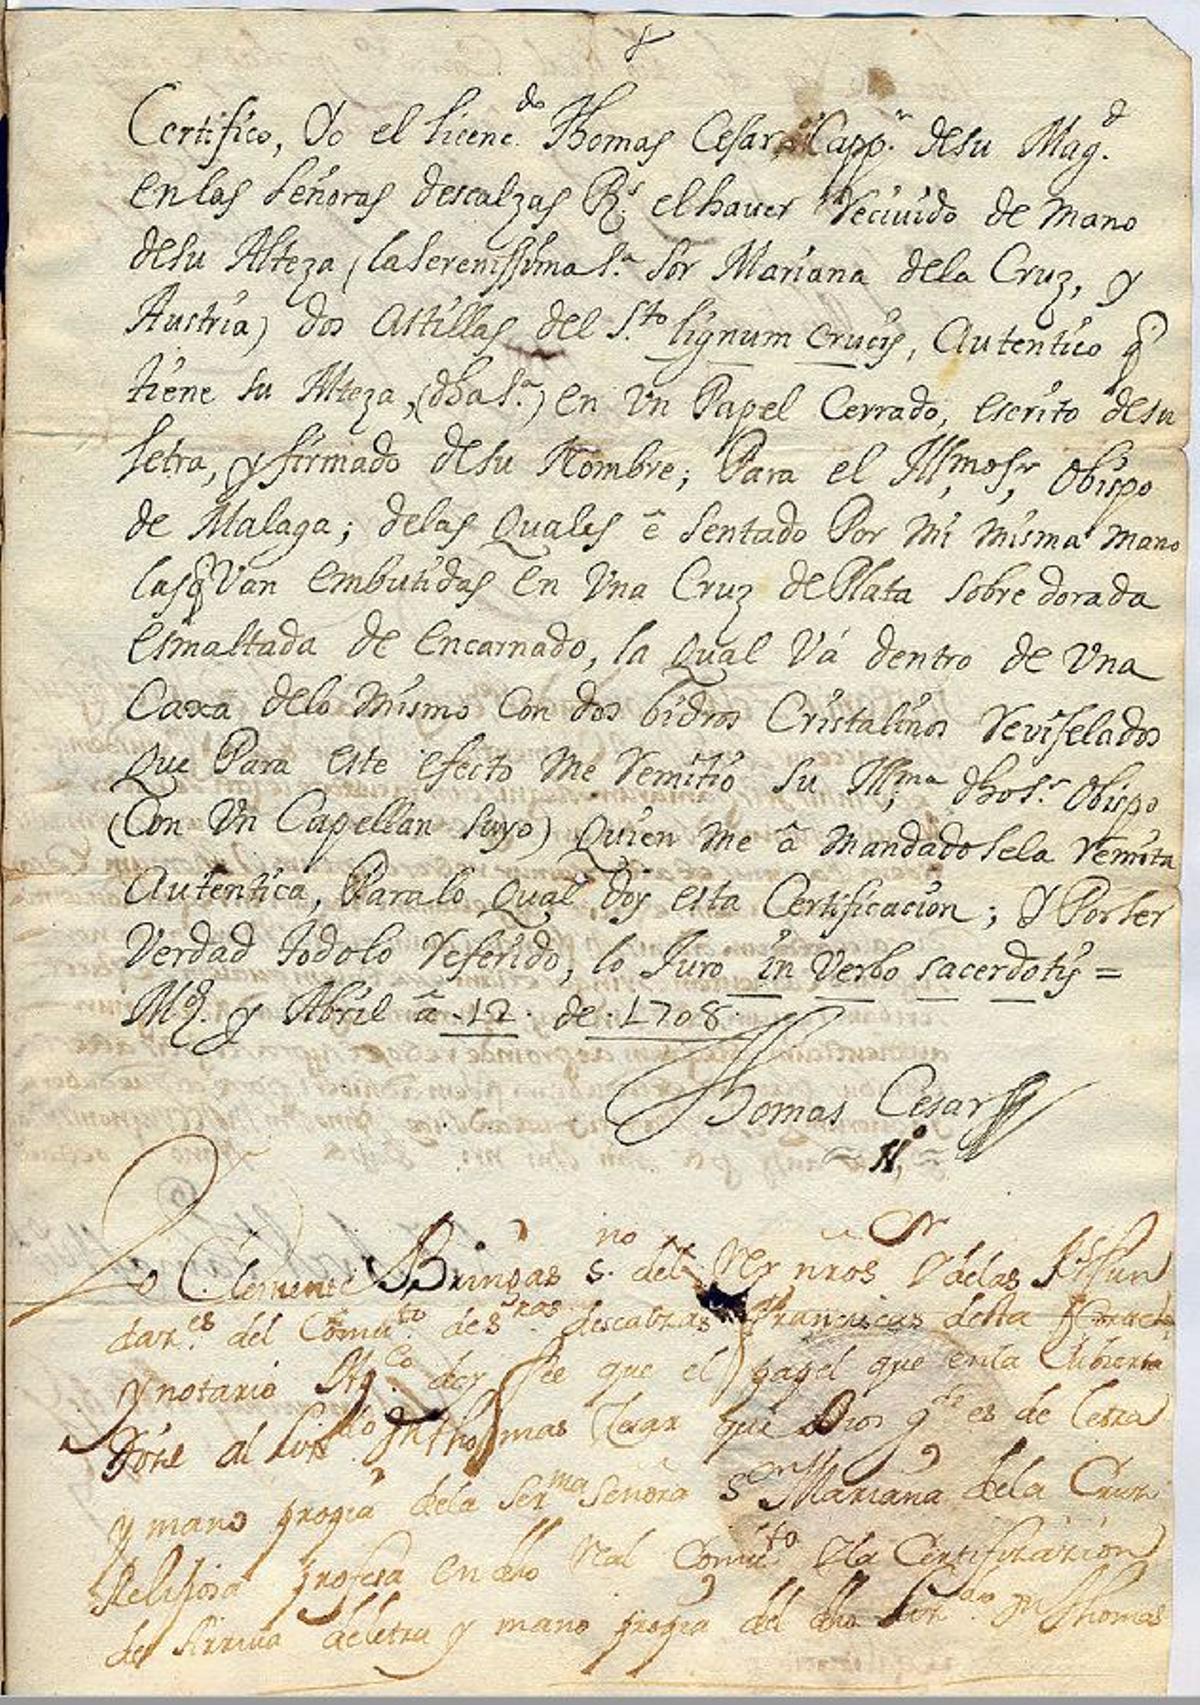 Certifico, Yo el Licen.do Thomas Cesar, Capp.n desu Mag.d
en las señoras descalzas R.s el haver recivido de mano
desu Alteza (la serenissima S.a Sor Mariana dela Cruz, y
Austria) dos Astillas del S.to Lignum crucis, Autentico q
tiene su Alteza, (dha S.a) en un Papel Cerrado, escrito desu
letra, y firmado desu Nombre; Para el Ill.mo s.r, Obispo
de Malaga; delas Quales ê sentado Por mi misma mano
las q Van embutidas en Una Cruz de Plata sobredorada
esmaltada de encarnado, la qual Vá dentro de Una
Caxa delo mismo con dos bidros Cristalinos reviselados
que Para este efecto me remitio su Ill.ma dho s.r Obispo
(Con Un Capellan suyo) Quien me â mandado sela remita
Autentica, Paralo qual doy esta Certificacion; y Por ser
Verdad todolo referido, lo Juro in verbo sacerdotis =
M.d y Abril â .12. de .1708.
Thomas Cesar
Yo Clemente Bringas s.no del Rey nro s.r y delas
del Comu.to de s.ras descalzas Franciscas desta Corte
y notario App.co doy fee que el papel que enla Cubierta
dize al Liz.do Dn Thomas Cesar que Dios g.de es de letra
y mano propia dela Ser.ma Señora Sor Mariana dela Cruz
Relijiosa profesa en dho Real Comu.to y la Certificacion
de Arriva de letra y mano propia del dho Liz.do Dn Thomas